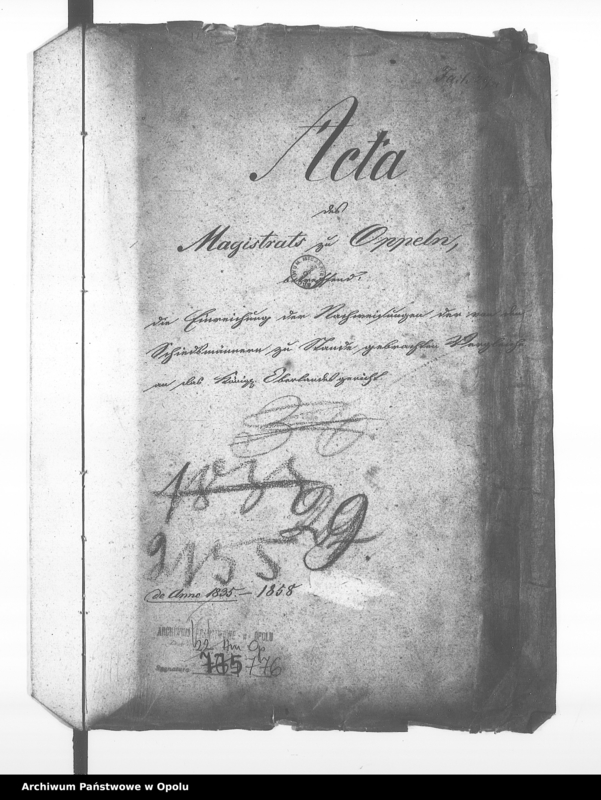 Acta
des
Magistrats zu Oppeln,
betreffend:
die Einreichung der Nachweisungen der von den
Schiedsmännern zu Stande gebrachten Vergleiche
an das Königl. Oberlandesgericht
29.
2135
de Anno 1835. – 1858
ARCHIWUM OPOLU
22 Am Op
776
Archiwum Państwowe w Opolu